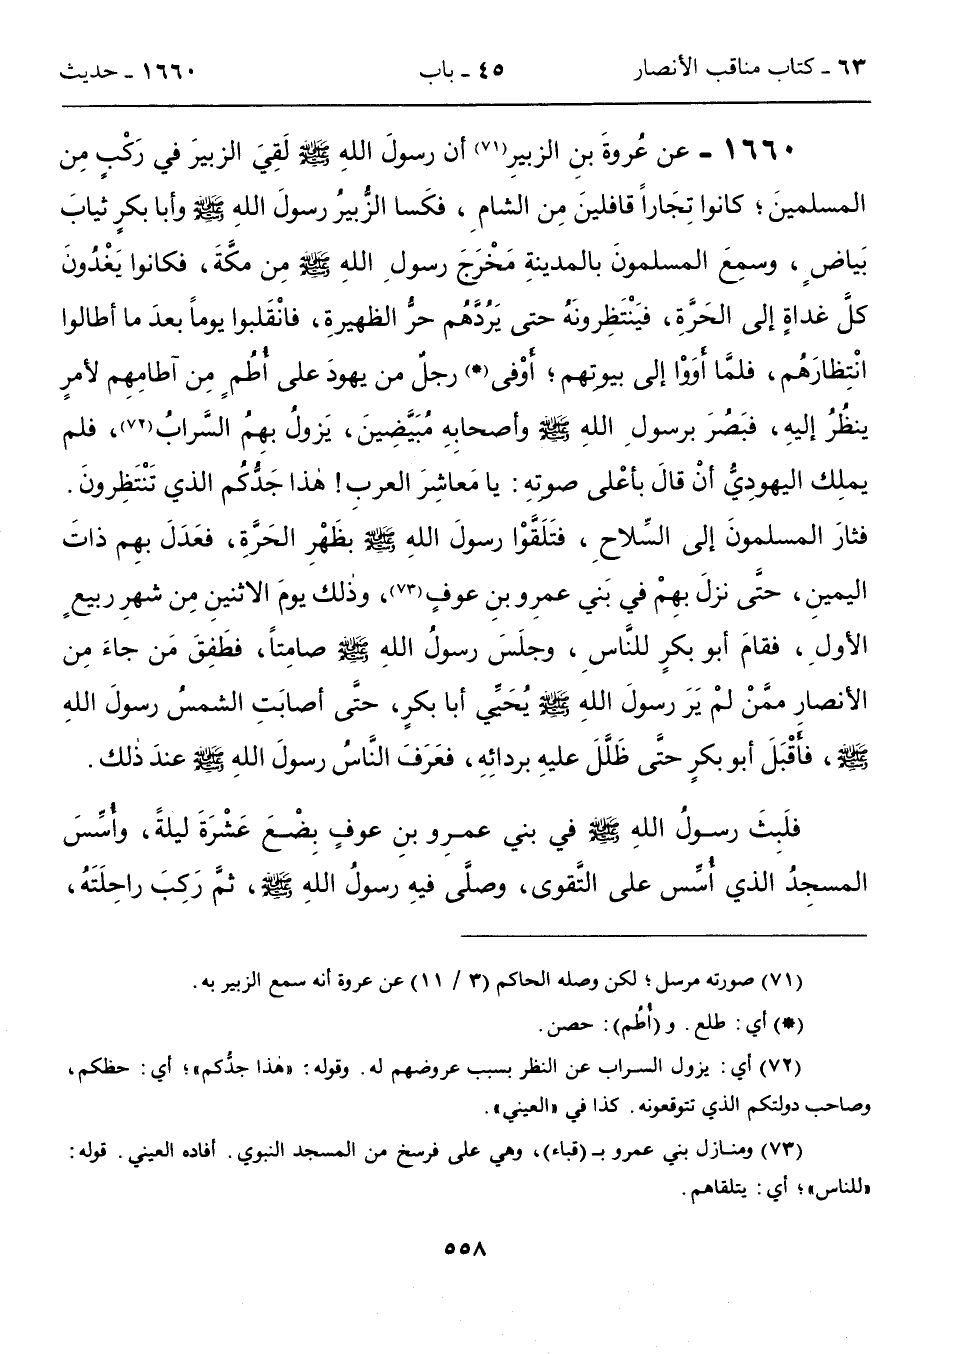 ٦٣ - كتاب مناقب الأنصار ٤٥ - باب ١٦٦٠ - حديث
١٦٦٠ - عن عُروةَ بنِ الزبيرِ(٧١) أن رسولَ اللهِ ﷺ لَقِيَ الزبيرَ في رَكْبٍ مِن
المسلمينَ؛ كانوا تِجَاراً قافلينَ مِن الشامِ، فكَسا الزُّبيرُ رسولَ اللهِ ﷺ وأبا بكرٍ ثيابَ
بَياضٍ، وسمِعَ المسلمونَ بالمدينةِ مَخْرَجَ رسولِ اللهِ ﷺ مِن مكَّةَ، فكانوا يَغْدُونَ
كلَّ غداةٍ إلى الحَرَّةِ، فيَنْتَظِرونَهُ حتى يَرُدَّهُم حرُّ الظهيرةِ، فانْقَلبوا يوماً بعدَ ما أطالوا
انْتِظارَهُم، فلمَّا أَوَوْا إلى بيوتِهم؛ أَوْفى(*) رجلٌ من يهودَ على أُطُمٍ مِن آطامِهِم لأمرٍ
ينظُرُ إليهِ، فبَصُرَ برسولِ اللهِ ﷺ وأصحابِهِ مُبَيَّضِينَ، يَزولُ بهِمُ السَّرابُ(٧٢)، فلم
يملِك اليهوديُّ أنْ قالَ بأعْلى صوتِهِ: يا مَعاشِرَ العربِ! هٰذا جَدُّكُم الذي تَنْتَظِرونَ.
فثارَ المسلمونَ إلى السِّلاحِ، فتَلَقَّوْا رسولَ اللهِ ﷺ بظَهْرِ الحَرَّةِ، فعَدَلَ بهِم ذاتَ
اليمينِ، حتَّى نزلَ بهِمْ في بَني عمرِو بنِ عوفٍ(٧٣)، وذٰلك يومَ الاثنينِ مِن شهرِ ربيعٍ
الأولِ، فقامَ أبو بكرٍ للنَّاسِ، وجلَسَ رسولُ اللهِ ﷺ صامِتاً، فطَفِقَ مَن جاءَ مِن
الأنصارِ ممَّنْ لمْ يَرَ رسولَ اللهِ ﷺ يُحَيِّي أبا بكرٍ، حتَّى أصابَتِ الشمسُ رسولَ اللهِ
ﷺ، فأَقْبَلَ أبو بكرٍ حتَّى ظَلَّلَ عليهِ بردائِهِ، فعَرَفَ النَّاسُ رسولَ اللهِ ﷺ عندَ ذٰلك.
فلَبِثَ رسولُ اللهِ ﷺ في بني عمرِو بنِ عوفٍ بِضْعَ عَشْرَةَ ليلةً، وأُسِّسَ
المسجِدُ الذي أُسِّس على التَّقوى، وصلَّى فيهِ رسولُ اللهِ ﷺ، ثمَّ رَكِبَ راحِلَتَهُ،
(٧١) صورته مرسل؛ لكن وصله الحاكم (٣ / ١١) عن عروة أنه سمع الزبير به.
(*) أي: طلع. و (أُطُم): حصن.
(٧٢) أي: يزول السراب عن النظر بسبب عروضهم له. وقوله: «هٰذا جدُّكم»؛ أي: حظكم،
وصاحب دولتكم الذي تتوقعونه. كذا في «العيني».
(٧٣) ومنازل بني عمرو بـ (قباء)، وهي على فرسخ من المسجد النبوي. أفاده العيني. قوله:
«للناس»؛ أي: يتلقاهم.
٥٥٨